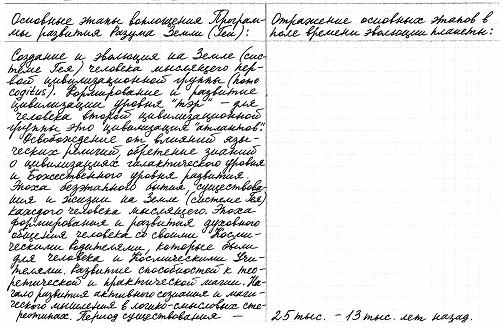 Основные этапы воплощения Програм-
мы развития Разума Земли (Геи):
Создание и эволюция на Земле (сис-
теме Гея) человека мыслящего пер-
вой цивилизационной группы (homo
cogitus). Формирование и развитие
цивилизации уровня "тэр" – для
человека второй цивилизационной
группы это цивилизация "атлантов".
Освобождение от влияний язы-
ческих религий, обретение знаний
о цивилизациях галактического уровня
и Божественного уровня развития.
Эпоха безэтапного бытия, существова-
ния и жизни на Земле (системе Гея)
каждого человека мыслящего. Эпоха
формирования и развития духовного
общения человека со своими Косми-
ческими водителями, которые были
для человека и Космическими Учи-
телями. Развитие способностей к тео-
ретической и практической магии. На-
чало развития активного сознания и маги-
ческого мышления в логико-смысловых сте-
реотипах. Период существования –
Отражение основных этапов в
поле времени эволюции планеты:
25 тыс. – 13 тыс. лет назад.